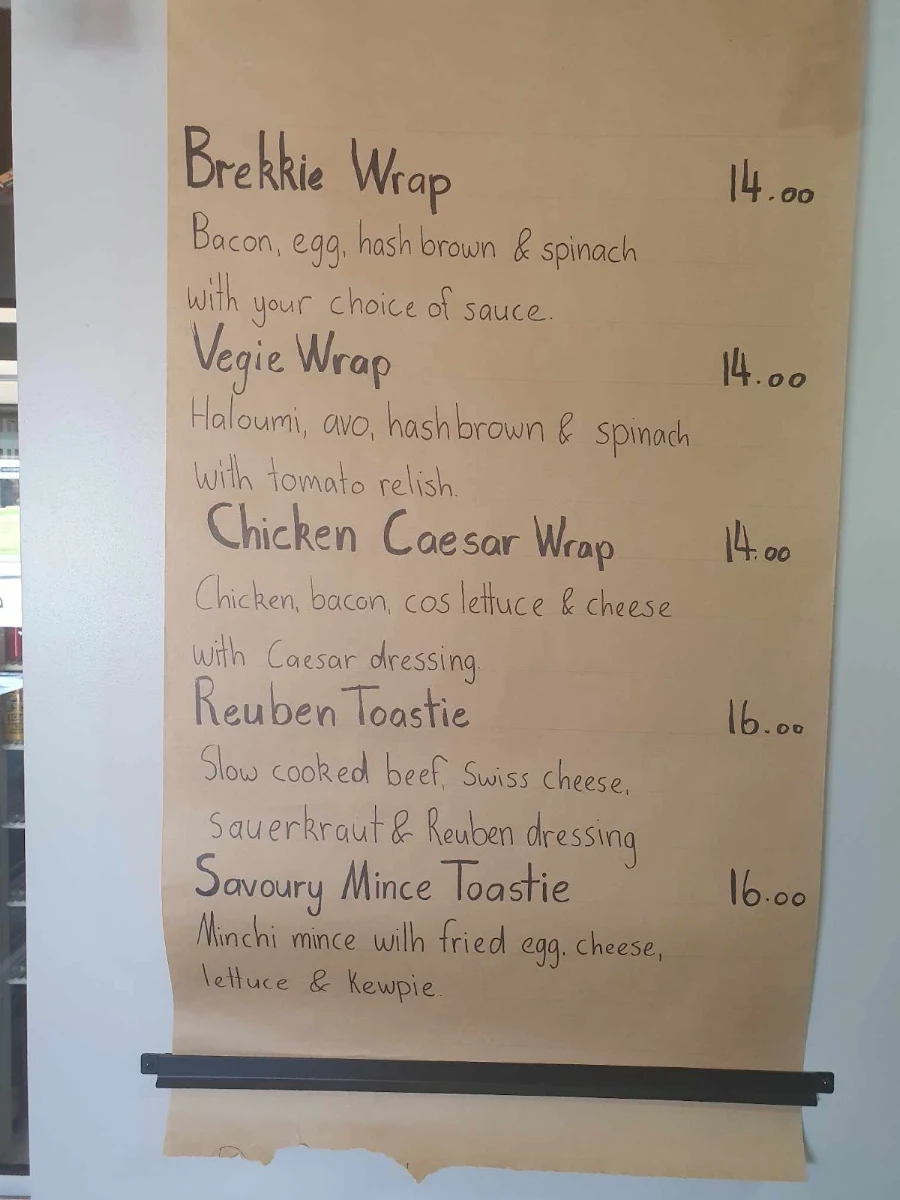 Brekkie Wrap 14.00
Bacon, egg, hash brown & spinach
with your choice of sauce.
Vegie Wrap 14.00
Haloumi, avo, hashbrown & spinach
with tomato relish.
Chicken Caesar Wrap 14.00
Chicken, bacon, cos lettuce & cheese
with Caesar dressing.
Reuben Toastie 16.00
Slow cooked beef, Swiss cheese,
sauerkraut & Reuben dressing
Savoury Mince Toastie 16.00
Minchi mince with fried egg. cheese,
lettuce & Kewpie.